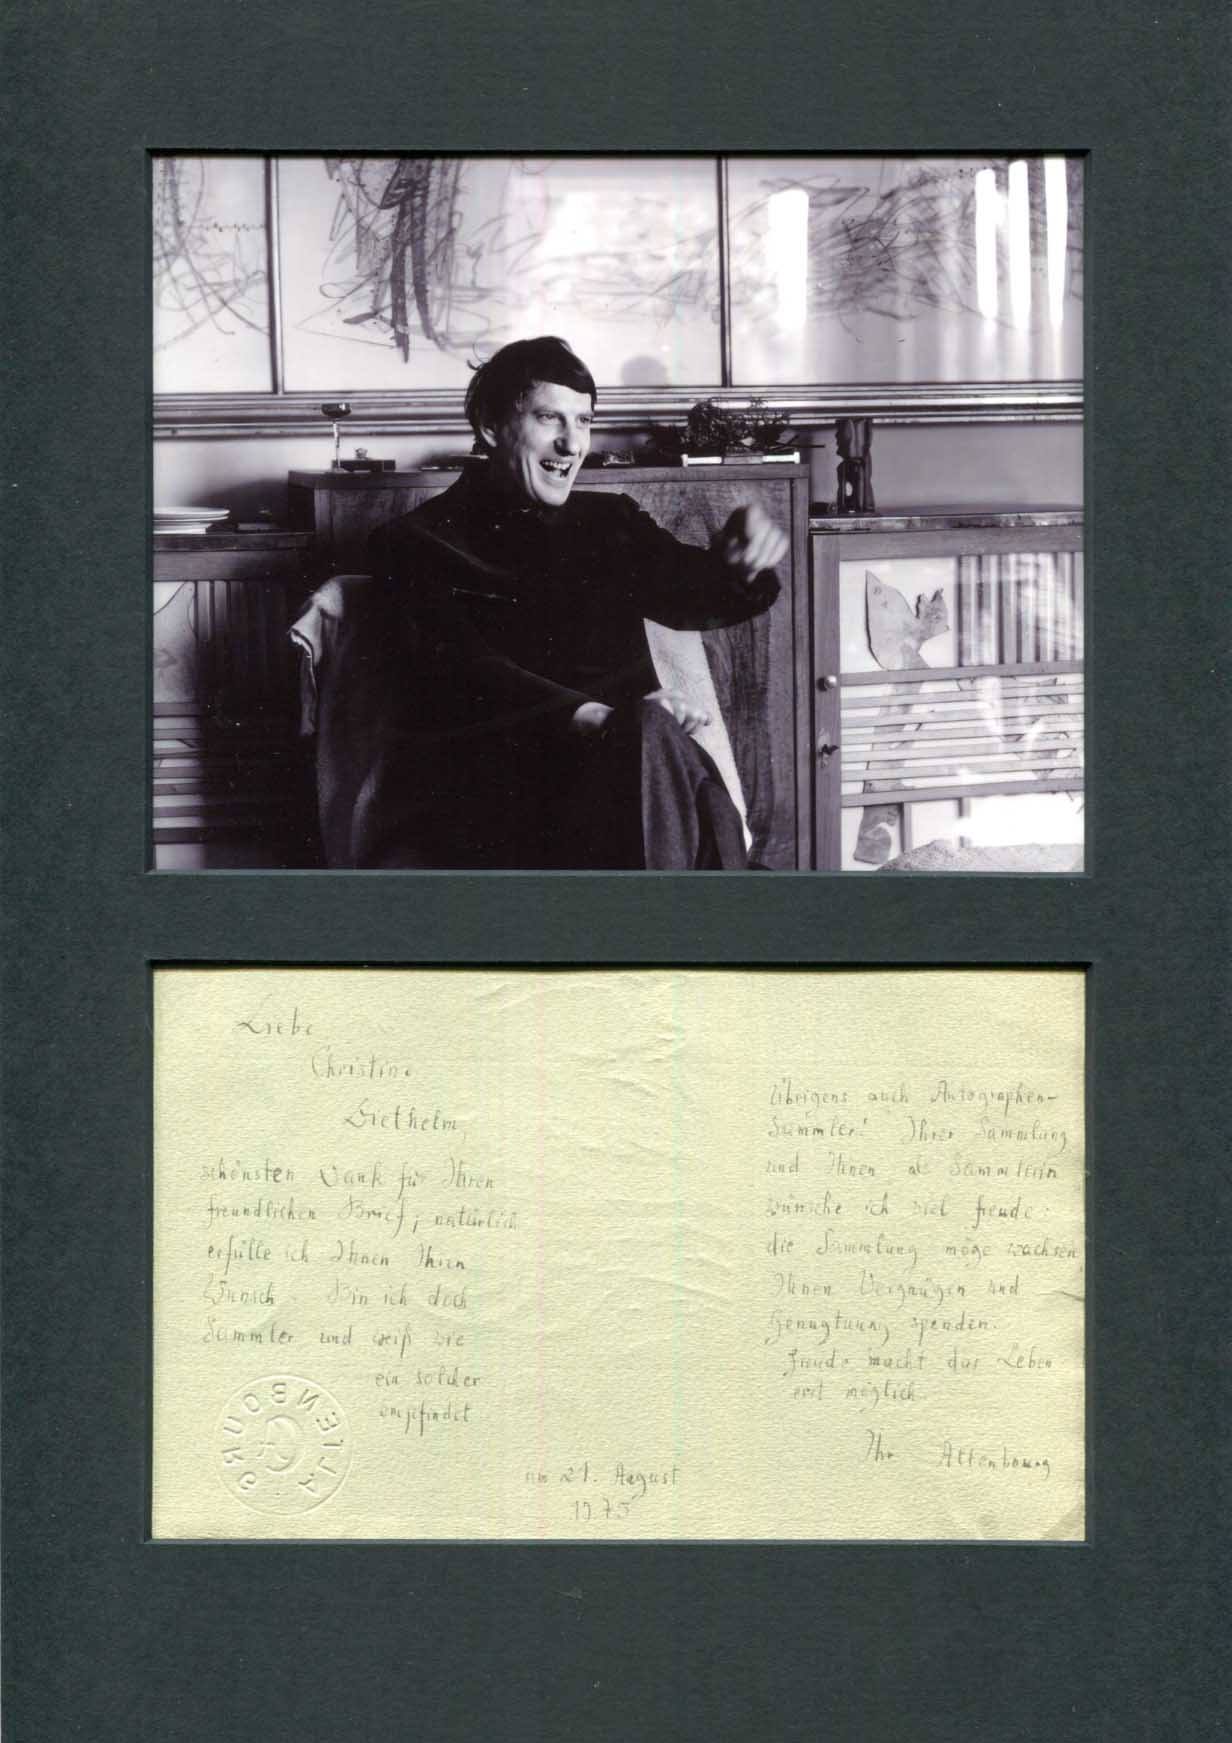 Liebe
Christine
Diethelm,
schönsten Dank für Ihren
freundlichen Brief; natürlich
erfülle ich Ihnen Ihren
Wunsch. Bin ich doch
Sammler und weiß wie
ein solcher
empfindet
ALTENBOURG
am 21. August
1975
Übrigens auch Autographen-
Sammler! Ihrer Sammlung
und Ihnen als Sammlerin
wünsche ich viel freude:
die Sammlung möge wachsen,
Ihnen Vergnügen und
Genugtuung spenden.
Freude macht das Leben
erst möglich.
Ihr Altenbourg